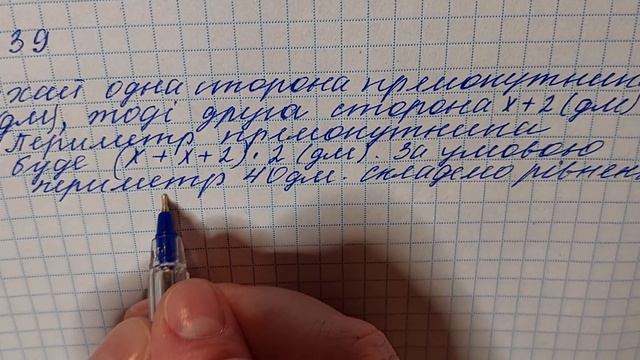 39
хай одна сторона прямокутник
дм), тоді друга сторона x+2 (дм)
Периметр прямокутника
буде (x+x+2)·2 (дм). За умовою
периметр 40 дм. складемо рівнен